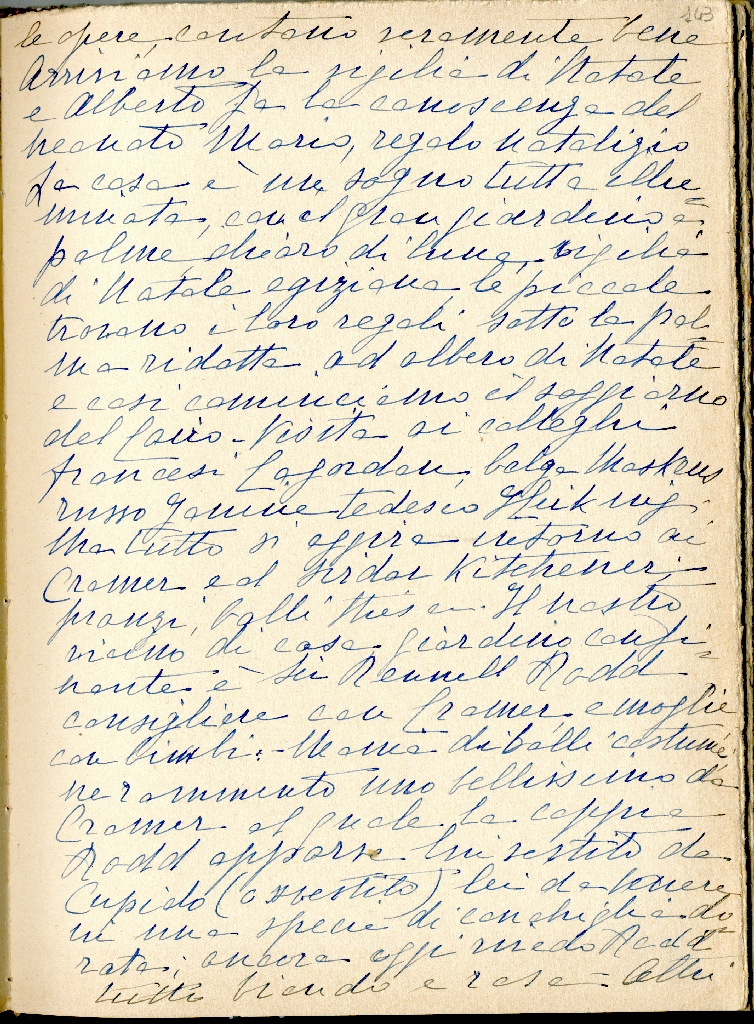 143
le opere, cantano veramente bene
Arriviamo la vigilia di Natale
e Alberto fa la conoscenza del
neonato Mario, regalo natalizio
La casa è un sogno tutta illu=
minata, con el gran giardino a
palme, chiaro di luna, vigilia
di Natale egiziana, le piccole
trovano i loro regali sotto la pal
ma ridotta ad albero di Natale
e così cominciamo il soggiorno
del Cairo - Visita ai colleghi
francesi Cogordan, belga Maskens
russo tedesco
Ma tutto si aggira intorno ai
Cromer e al Sirdar Kitchener;
pranzi, balli thès en. Il nostro
vicino di casa, giardino confi=
nante è Sir Rennell Rodd
consigliere con Cromer, e moglie
con bimbi. - Mania di balli costumé
ne rammento uno bellissimo da
Cromer al quale la coppia
Rodd apparse lui vestito da
Cupido (o svestito) lei da Venere
in una specie di conchiglia do
rata; ancora oggi rivedo Rodd
tutto biondo e rosa = Altri